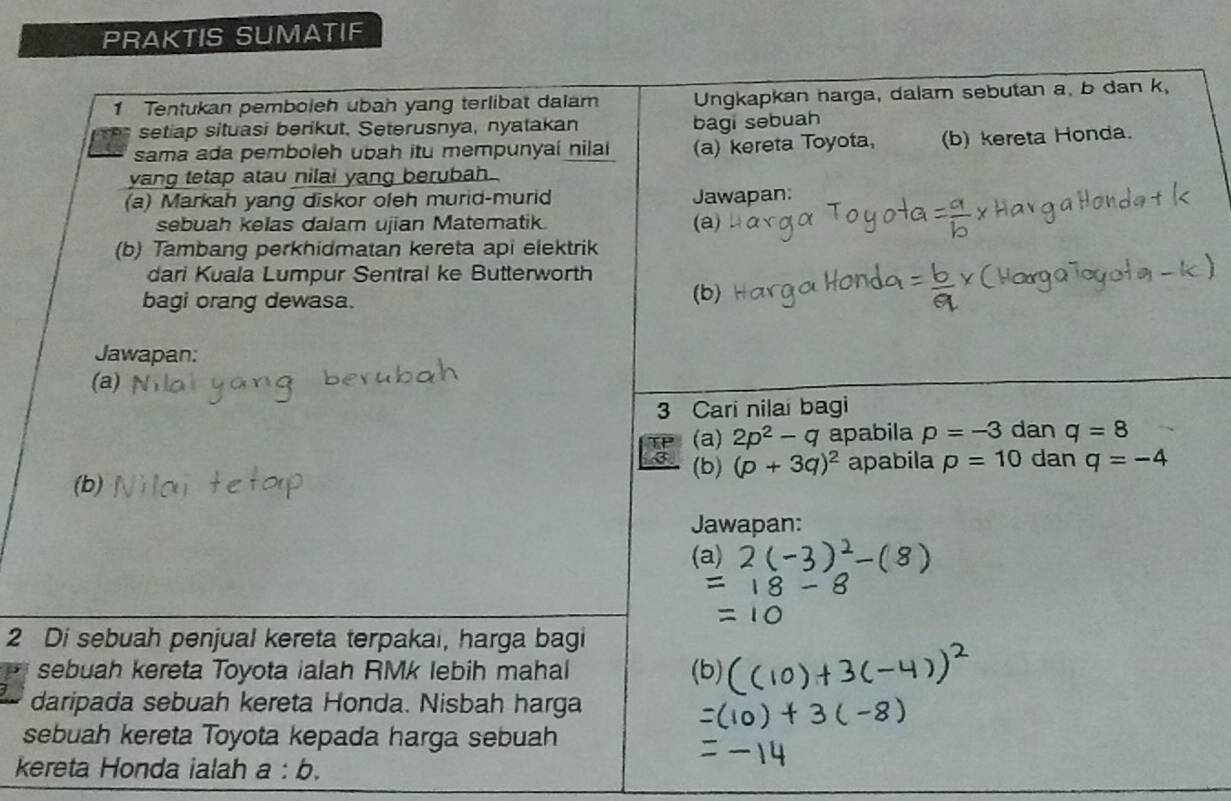 PRAKTIS SUMATIF
1 Tentukan pemboleh ubah yang terlibat dalam
setiap situasi berikut. Seterusnya, nyatakan
sama ada pemboleh ubah itu mempunyai nilai
yang tetap atau nilai yang berubah.
(a) Markah yang diskor oleh murid-murid
sebuah kelas dalam ujian Matematik.
(b) Tambang perkhidmatan kereta api elektrik
dari Kuala Lumpur Sentral ke Butterworth
bagi orang dewasa.
Jawapan:
(a) Nilai yang berubah
(b) Nilai tetap
2 Di sebuah penjual kereta terpakai, harga bagi
sebuah kereta Toyota ialah RMk lebih mahal
daripada sebuah kereta Honda. Nisbah harga
sebuah kereta Toyota kepada harga sebuah
kereta Honda ialah a : b.
Ungkapkan harga, dalam sebutan a, b dan k,
bagi sebuah
(a) kereta Toyota, (b) kereta Honda.
Jawapan:
(a) Harga Toyota = a/b × Harga Honda + k
(b) Harga Honda = b/a × (Harga Toyota - k)
3 Cari nilai bagi
TP 3
(a) 2p² − q apabila p = −3 dan q = 8
(b) (p + 3q)² apabila p = 10 dan q = −4
Jawapan:
(a) 2(-3)² - (8)
= 18 - 8
= 10
(b) ((10) + 3(-4))²
= (10) + 3(-8)
= -14